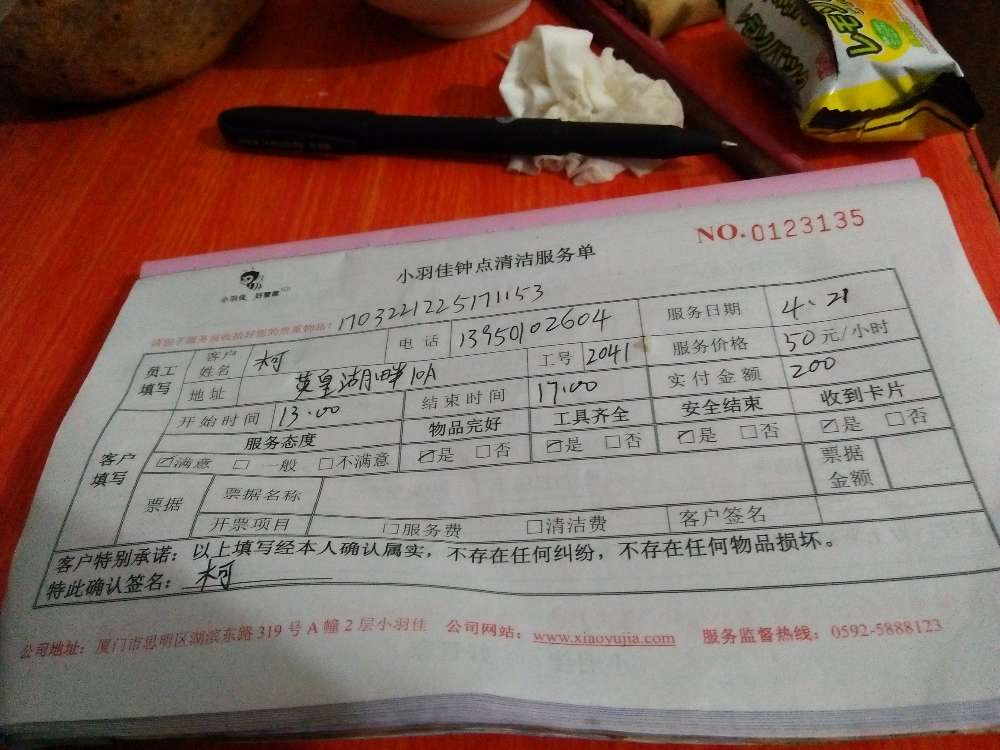 NO.0123135
小羽佳钟点清洁服务单
小羽佳 好管家
170322122517115​3
员工填写 客户姓名 柯 电话 13950102604 服务日期 4.21
地址 英皇湖畔10A 工号 2041 服务价格 50元/小时
开始时间 13.00 结束时间 17.00 实付金额 200
客户填写 服务态度 物品完好 工具齐全 安全结束 收到卡片
☑满意 □一般 □不满意 ☑是 □否 ☑是 □否 ☑是 □否 ☑是 □否
票据 票据名称 票据金额
开票项目 □服务费 □清洁费 客户签名
客户特别承诺：以上填写经本人确认属实，不存在任何纠纷，不存在任何物品损坏。
特此确认签名：柯
公司地址：厦门市思明区湖滨东路319号A幢2层小羽佳 公司网站：www.xiaoyujia.com 服务监督热线：0592-5888123